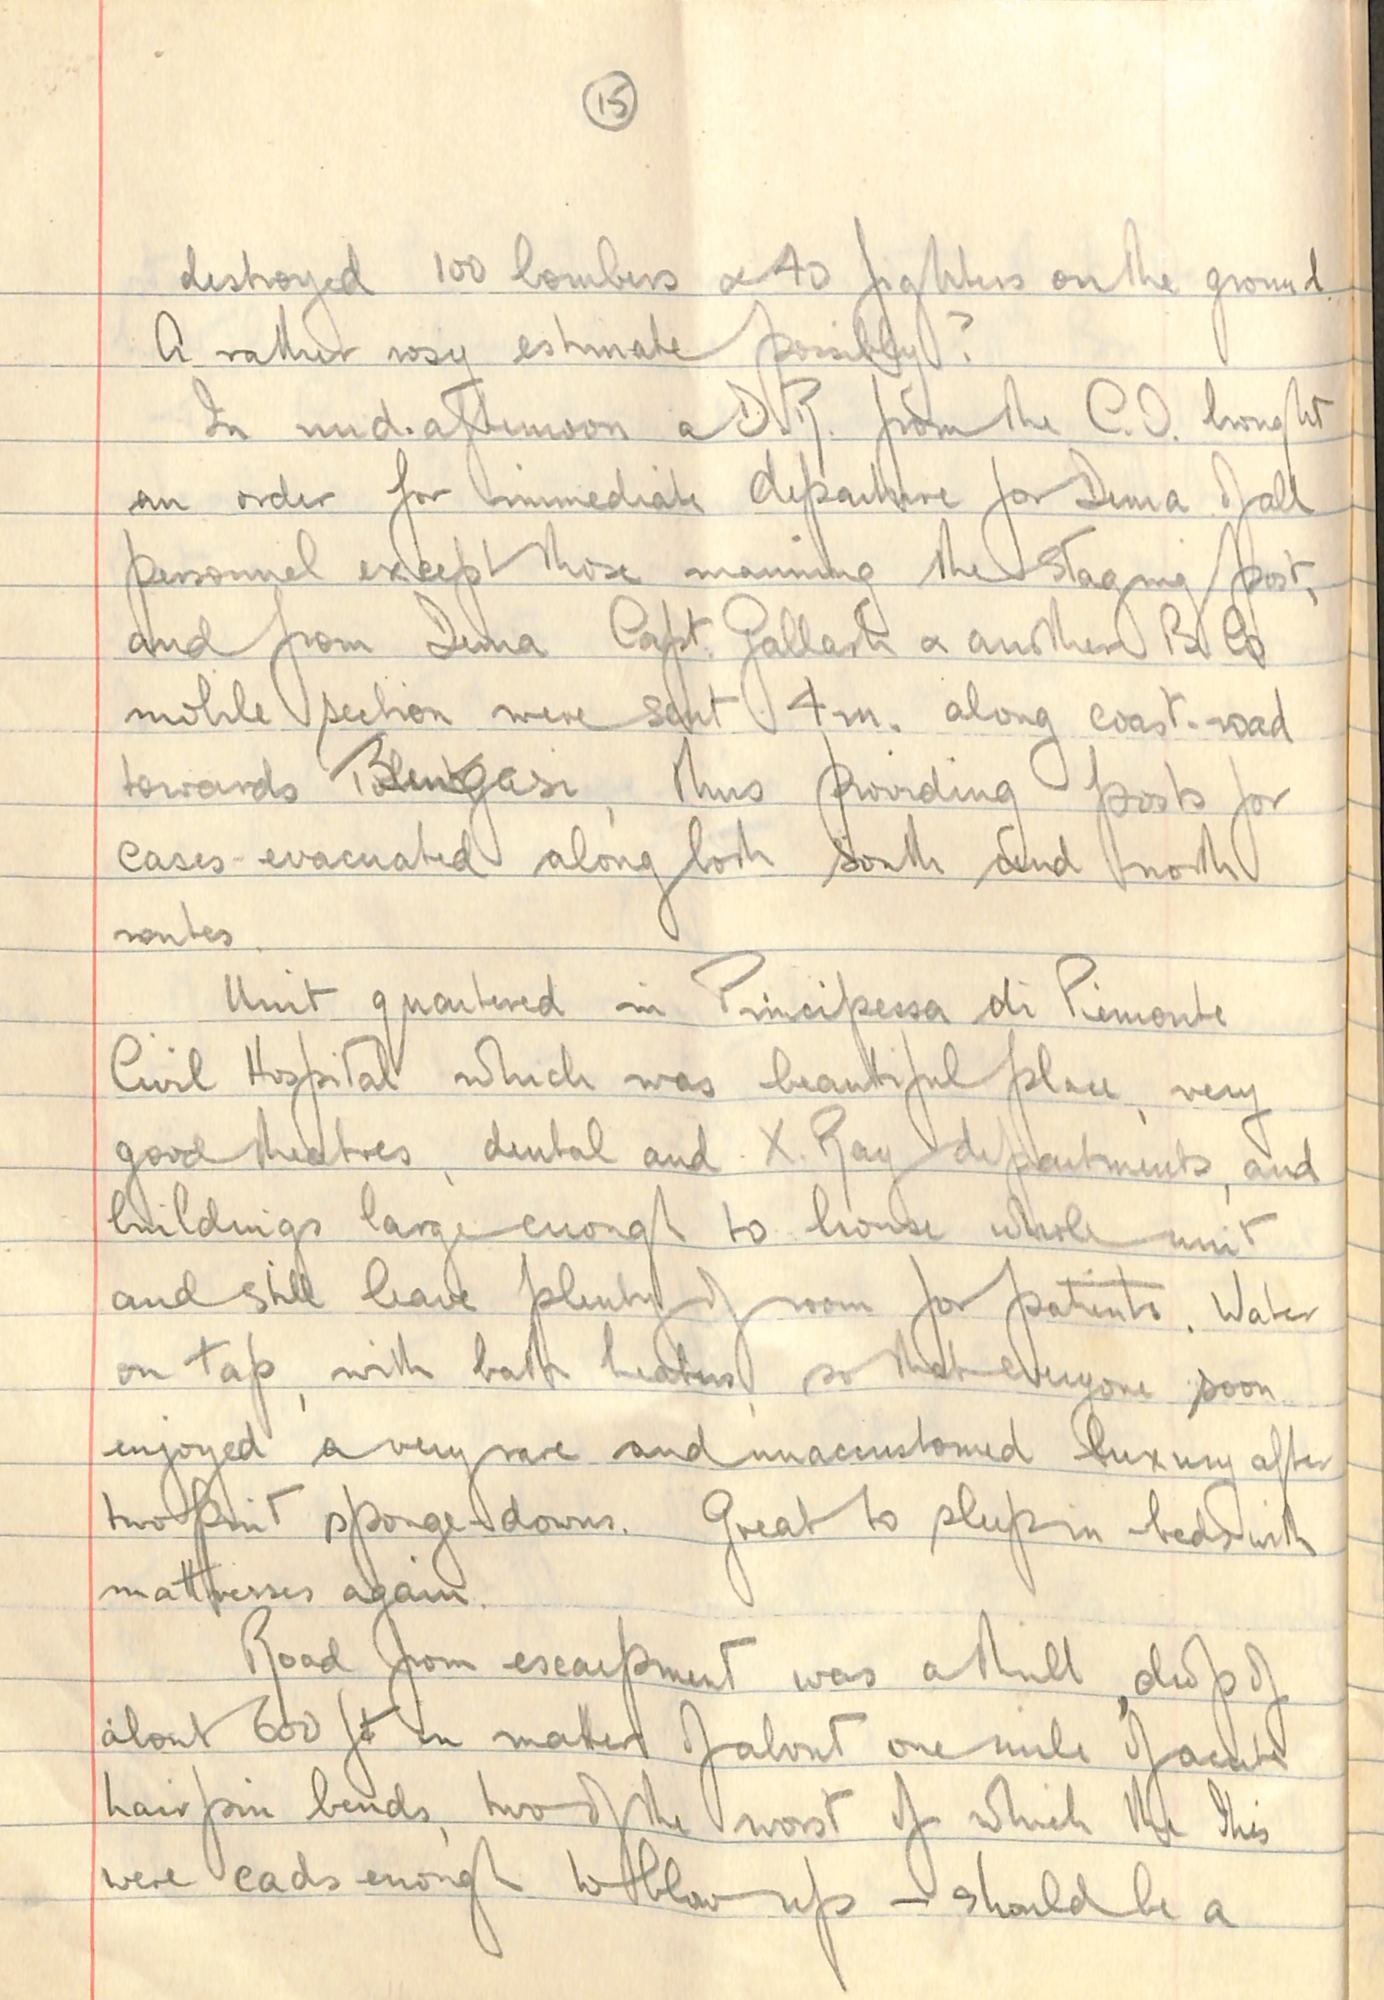 15
destroyed 100 bombers & 40 fighters on the ground.
A rather rosy estimate possibly?
In mid-afternoon a D.R. from the C.O. brought
an order for immediate departure for Derna of all
personnel except those manning the staging post,
and from Derna Capt. Gallash & another B Co
mobile section were sent 4 m. along coast-road
towards Bengasi, thus providing posts for
cases evacuated along both south and north
routes.
Unit quartered in Principessa di Piemonte
Civil Hospital which was beautiful place, very
good theatres, dental and X.Ray departments, and
buildings large enough to house whole unit
and still leave plenty of room for patients. Water
on tap, with bath heaters, so that everyone soon
enjoyed a very rare and unaccustomed luxury after
two pint sponge-downs. Great to sleep in beds with
mattresses again.
Road from escarpment was a thrill, drop of
about 600 ft in matter of about one mile of acute
hairpin bends, two of the worst of which the Itis
were cads enough to blow up – should be a